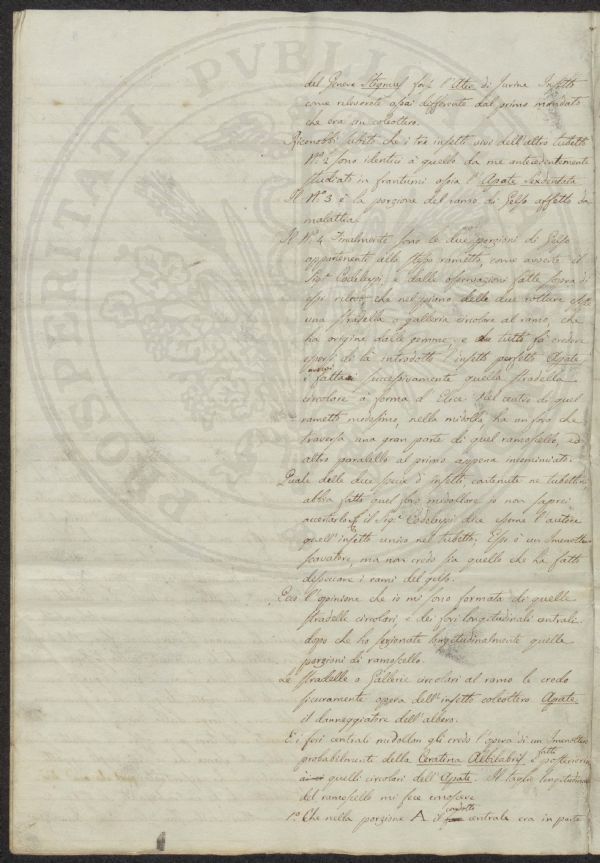 del Genere Stigmus forse l'Ater di Jurine Insetto
come rilevarete assai differente dal primo mandato
che era un coleottero.
Riconobbi subito che i tre insetti vivi dell'altro tubetto
N.° 2 sono identici a quello da me antecedentemente
studiato in frantumi ossia l'Apate Sexdentata
Il N.° 3 è la porzione del ramo di Gelso affetto da
malattia.
Il N.° 4 Finalmente sono le due porzioni di Gelso
appartenenti allo stesso rametto, come avverte il
Sig.r Codelupi e dalle osservazioni fatte sopra di
essi rilevo che nel piano delle due rotture esiste
una stradella o galleria circolare al ramo, che
ha origine dalle gemme, e tutto fà credere
essersi di là introdotto l'insetto perfetto Apate
e fatta successivamente quella stradella
circolare a forma d'Elice. Nel centro di quel
rametto medesimo, nella midolla, ha un foro che
traversa una gran parte di quel ramoscello, ed
altro paralello al primo appena incominciato.
Quale delle due specie d'insetti, contenute ne tubettini
abbia fatto quel foro midollare io non saprei
accertarlo, il Sig.r Codelupi dice esserne l'autore
quell'insetto unico nel tubetto; Esso è un Imenottero
scavatore, ma non credo sia quello che ha fatto
disseccare i rami del gelso.
Ecco l'opinione che io mi sono formata di quelle
stradelle circolari, e dei fori longitudinali centrali
dopo che ho sezionate longitudinalmente quelle
porzioni di ramoscello.
Le stradelle o Gallerie circolari al ramo le credo
sicuramente opera dell'insetto coleottero Apate
il danneggiatore dell'albero.
E i fori centrali midollari gli credo l'opera di un Imenottero
probabilmente della Ceratina Albilabris e fatti posteriori
a quelli circolari dell'Apate. Il taglio longitudinale
del ramoscello mi fece conoscere
1.° Che nella porzione A il condotto centrale era in parte